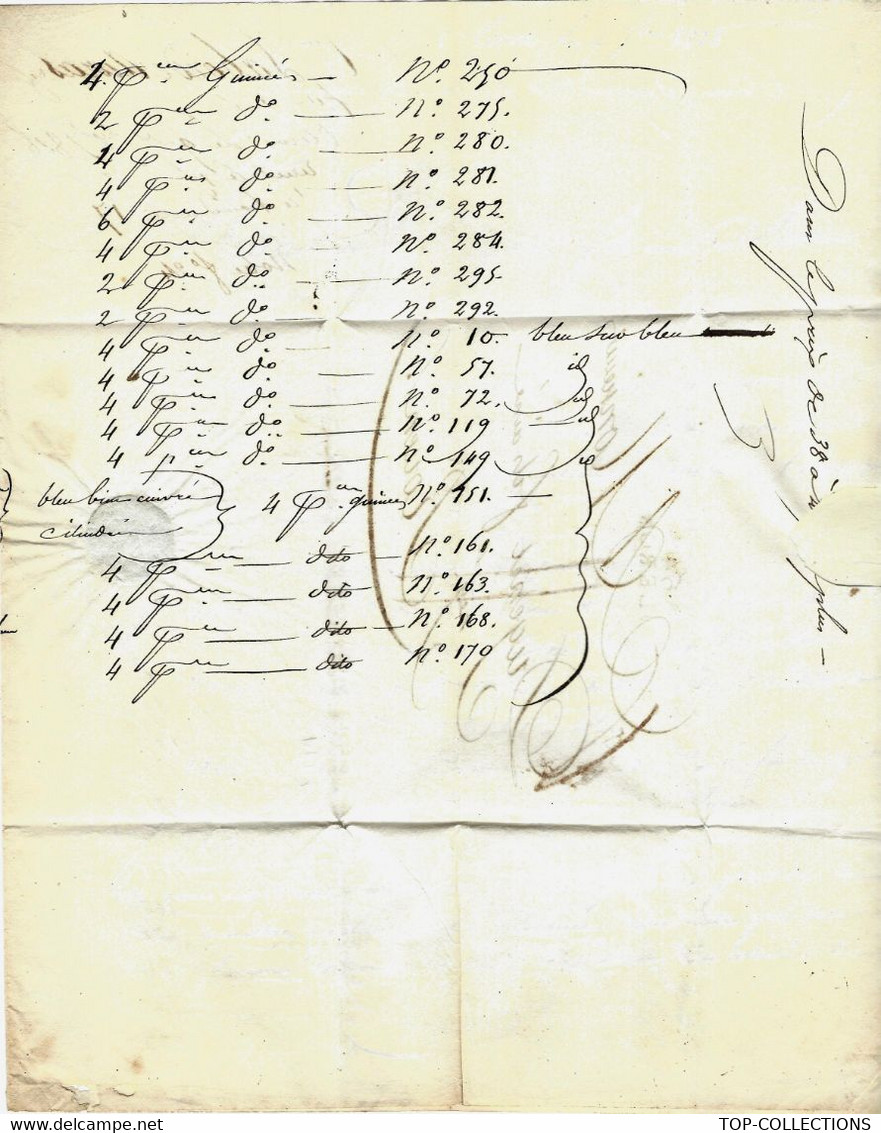 4 pces Guinées — No. 250
2 pces do. — No. 275.
4 pces do. — No. 280.
4 pces do. — No. 281.
6 pces do. — No. 282.
4 pces do. — No. 284.
2 pces do. — No. 295.
2 pces do. — No. 292.
4 pces do. — No. 10. bleu sur bleu
4 pces do. — No. 57. id
4 pces do. — No. 72. id
4 pces do. — No. 119 — id
4 pces do. — No. 149 id
bleu bien cuivré 4 pces guinées No. 151. —
4 pces — dito — No. 161.
4 pces — dito No. 163.
4 pces — dito — No. 168.
4 pces — dito No. 170
Dans le prix de 38 à plus —
TOP-COLLECTIONS